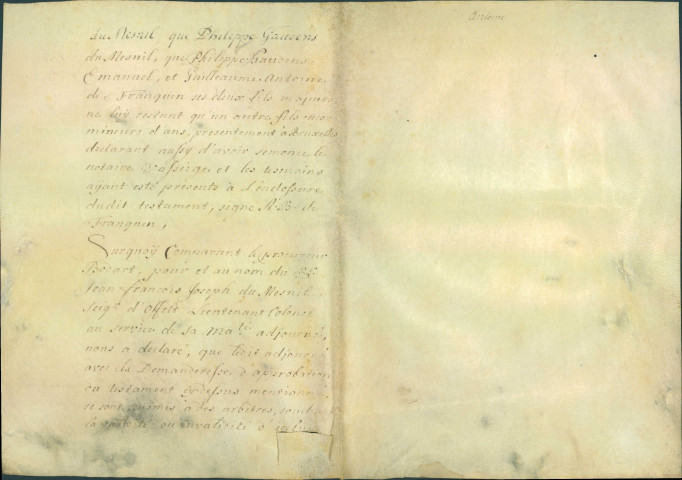 du Mesnil que Philippe Gaucens
du Mesnil, que Philippe
Emanuel, et Guilleaume Antoine
de Franquin ses deux fils majeurs
ne luy restant qu'un autre fils encor
mineure d'ans, presentement à Bruxelles
declarant aussy d'avoir semoncé le
notaire et les tesmoins
ayant esté presents à l'encloseure
dudit testament, signé de
Franquin,
Surquoÿ Comparant le procureur
pour et au nom du Sr
Jean-François Joseph du Mesnil
Seigr d'Offelt Lieutenant Colonel
au service de sa Maté adjourné,
nous a declaré, que ledit adjourné
avec la Demanderesse d'approbation
du testament cy dessus mentionné
se sont submis à des arbitres,
la validité ou invalidité d'
Antoine